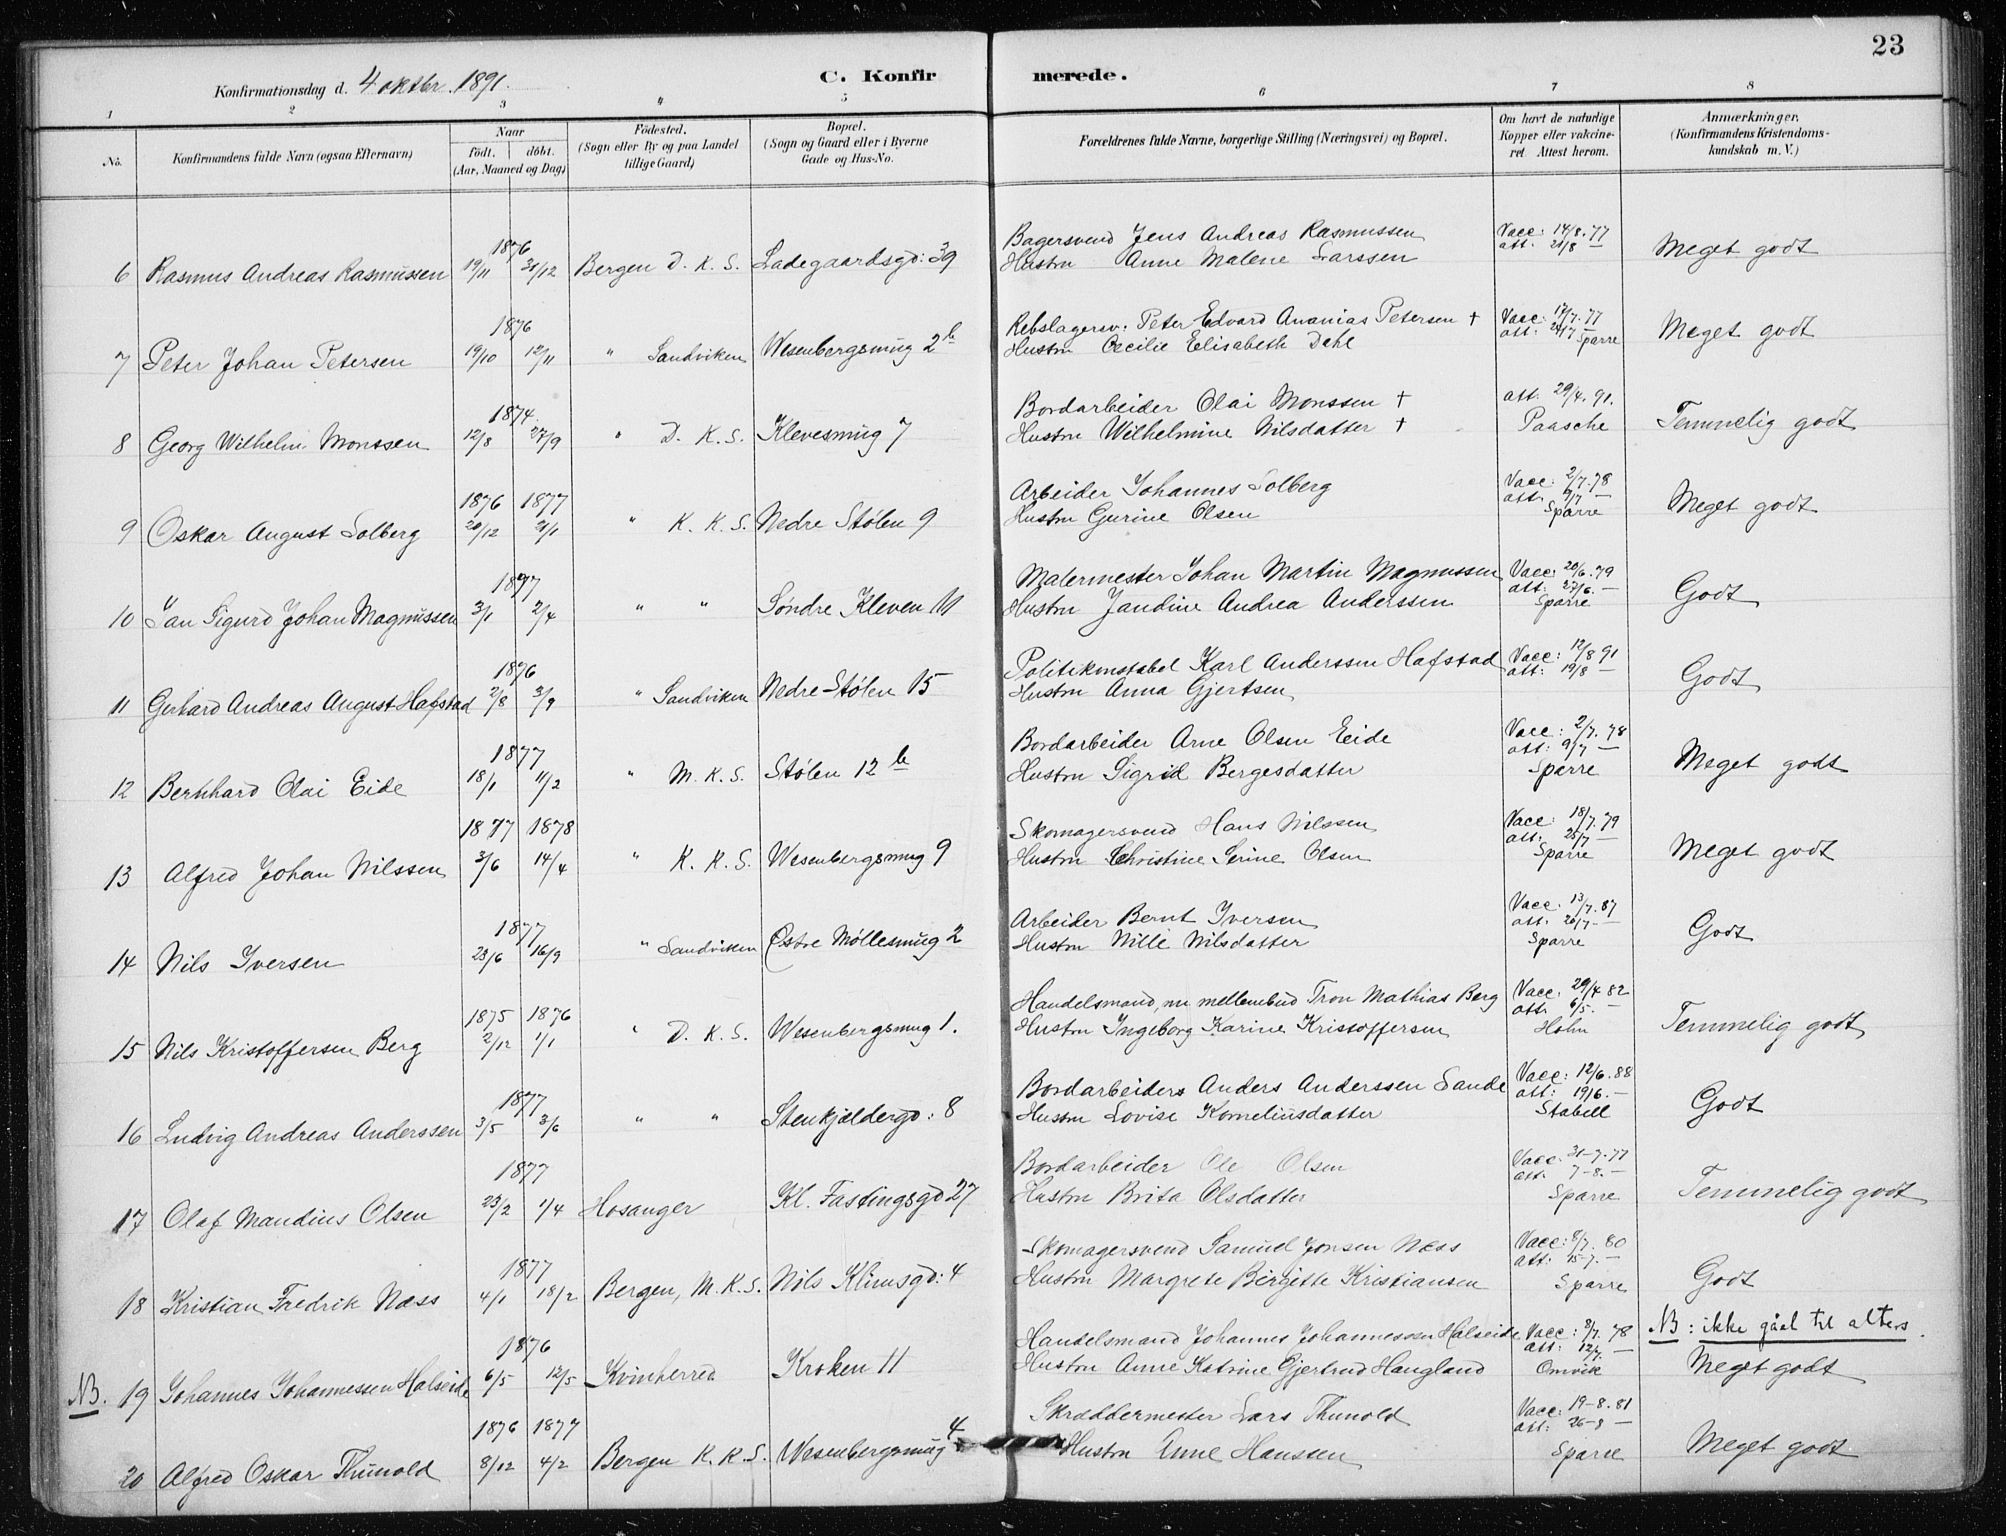 23
Konfirmationsdag d. 4 oktbr. 1891.
C. Konfirmerede.
1 2 3 " 5 6 7 8
No. Konfirmandens fulde Navn (ogsaa Efternavn) Naar födt. döbt. (Aar, Maaned og Dag) Födested. (Sogn eller By og paa Landet tillige Gaard) Bopæl. (Sogn og Gaard eller i Byerne Gade og Hus-No. Forældrenes fulde Navne, borgerlige Stilling (Næringsvei) og Bopæl. Om havt de naturlige Kopper eller vakcineret. Attest herom. Anmærkninger. (Konfirmandens Kristendomskundskab m. V.)
1876 Bagersvend Jens Andreas Rasmussen Vacc: 14/8.77
6 Rasmus Andreas Rasmussen 19/11 31/12 Bergen D. K. S. Ladegaardsgd: 39 Hustru Anne Malene Larssen att: 21/8 — Meget godt
1876 Rebslagersv: Peter Edvard Ananias Petersen † Vacc: 17/7.77
7 Peter Johan Petersen 19/10 12/11 " Sandviken Wesenbergsmug 2b Hustru Cecilie Elisabeth Dahl att: 24/7 — Sparre Meget godt
1874 Bordarbeider Olai Monssen † att. 29/4.91.
8 Georg Wilhelm Monssen 12/8 27/9 " D. K. S. Klevesmug 7 Hustru Wilhelmine Nilsdatter † Paasche Temmelig godt
1876 1877 Arbeider Johannes Solberg Vacc: 2/7.78
9 Oskar August Solberg 20/12 21/1 " K. K. S. Nedre Stølen 9 Hustru Gurine Olsen att: 9/7 — Sparre Meget godt
1877 Malermester Johan Martin Magnussen Vacc: 20/6.79
10 Jan Sigurd Johan Magnussen 3/1 2/4 " " Søndre Kleven 11 Hustru Jandine Andrea Anderssen att: 27/6.— Sparre Godt
1876 Politikonstabel Karl Anderssen Hafstad Vacc: 12/8 91
11 Gerhard Andreas August Hafstad 2/8 3/9 " Sandviken Nedre Stølen 15 Hustru Anna Gjertsen att: 19/8 — Godt
1877 Bordarbeider Arne Olsen Eide Vacc: 2/7.78
12 Bernhard Olai Eide 18/1 11/2 " M. K. S. Stølen 12b Hustru Sigrid Bergesdatter att: 9/7 — Sparre Meget godt
1877 1878 Skomagersvend Hans Nilssen Vacc: 18/7.79
13 Alfred Johan Nilssen 3/6 14/4 " K. K. S. Wesenbergsmug 9 Hustru Christine Serine Olsen att: 25/7 — Sparre Meget godt
1877 Arbeider Bernt Iversen Vacc. 13/7.87
14 Nils Iversen 23/6 16/9 " Sandviken Østre Møllesmug 2 Hustru Nille Nilsdatter att. 20/7.— Sparre Godt
1875 1876 Handelsmand, nu mellembud Tron Mathias Berg Vacc: 29/4 82
15 Nils Kristoffersen Berg 2/12 1/1 " D. K. S. Wesenbergsmug 1. Hustru Ingeborg Karine Kristoffersen att. 6/5. — Holm Temmelig godt
1877 Bordarbeiders Anders Anderssen Sande Vacc: 12/6.88
16 Ludvig Andreas Anderssen 3/5 3/6 " " Stenkjældergd: 8 Hustru Lovise Korneliusdatter att: 19/6.— Stabell Godt
1877 Bordarbeider Ole Olsen Vacc. 31-7.77
17 Olaf Mandius Olsen 23/2 1/4 Hosanger Kl. Fastingsgd 27 Hustru Brita Olsdatter att: 7-8.— Sparre Temmelig godt
1877 Skomagersvend Samuel Jonsen Næss Vacc: 8/7. 80
18 Kristian Fredrik Næss 4/1 18/2 Bergen, M. K. S. Nils Klimsgd: 4 Hustru Margrete Birgitte Kristiansen att: 15-7.— Sparre Godt
1876 Handelsmand Johannes Johannessen Halseide Vacc: 3/7. 78 NB: ikke gået til alters.
NB. 19 Johannes Johannessen Halseide 6/5 12/5 Kvinherred Kroken 11 Hustru Anne Katrine Gjertrud Haugland att: 12/7. — Omvik Meget godt
1876 1877 Skræddermester Lars Thunold Vacc: 19-8.81
20 Alfred Oskar Thunold 8/12 4/2 Bergen K. K. S. Wesenbergsmug 4 Hustru Anne Hanssen att: 26-8 — Sparre Meget godt.